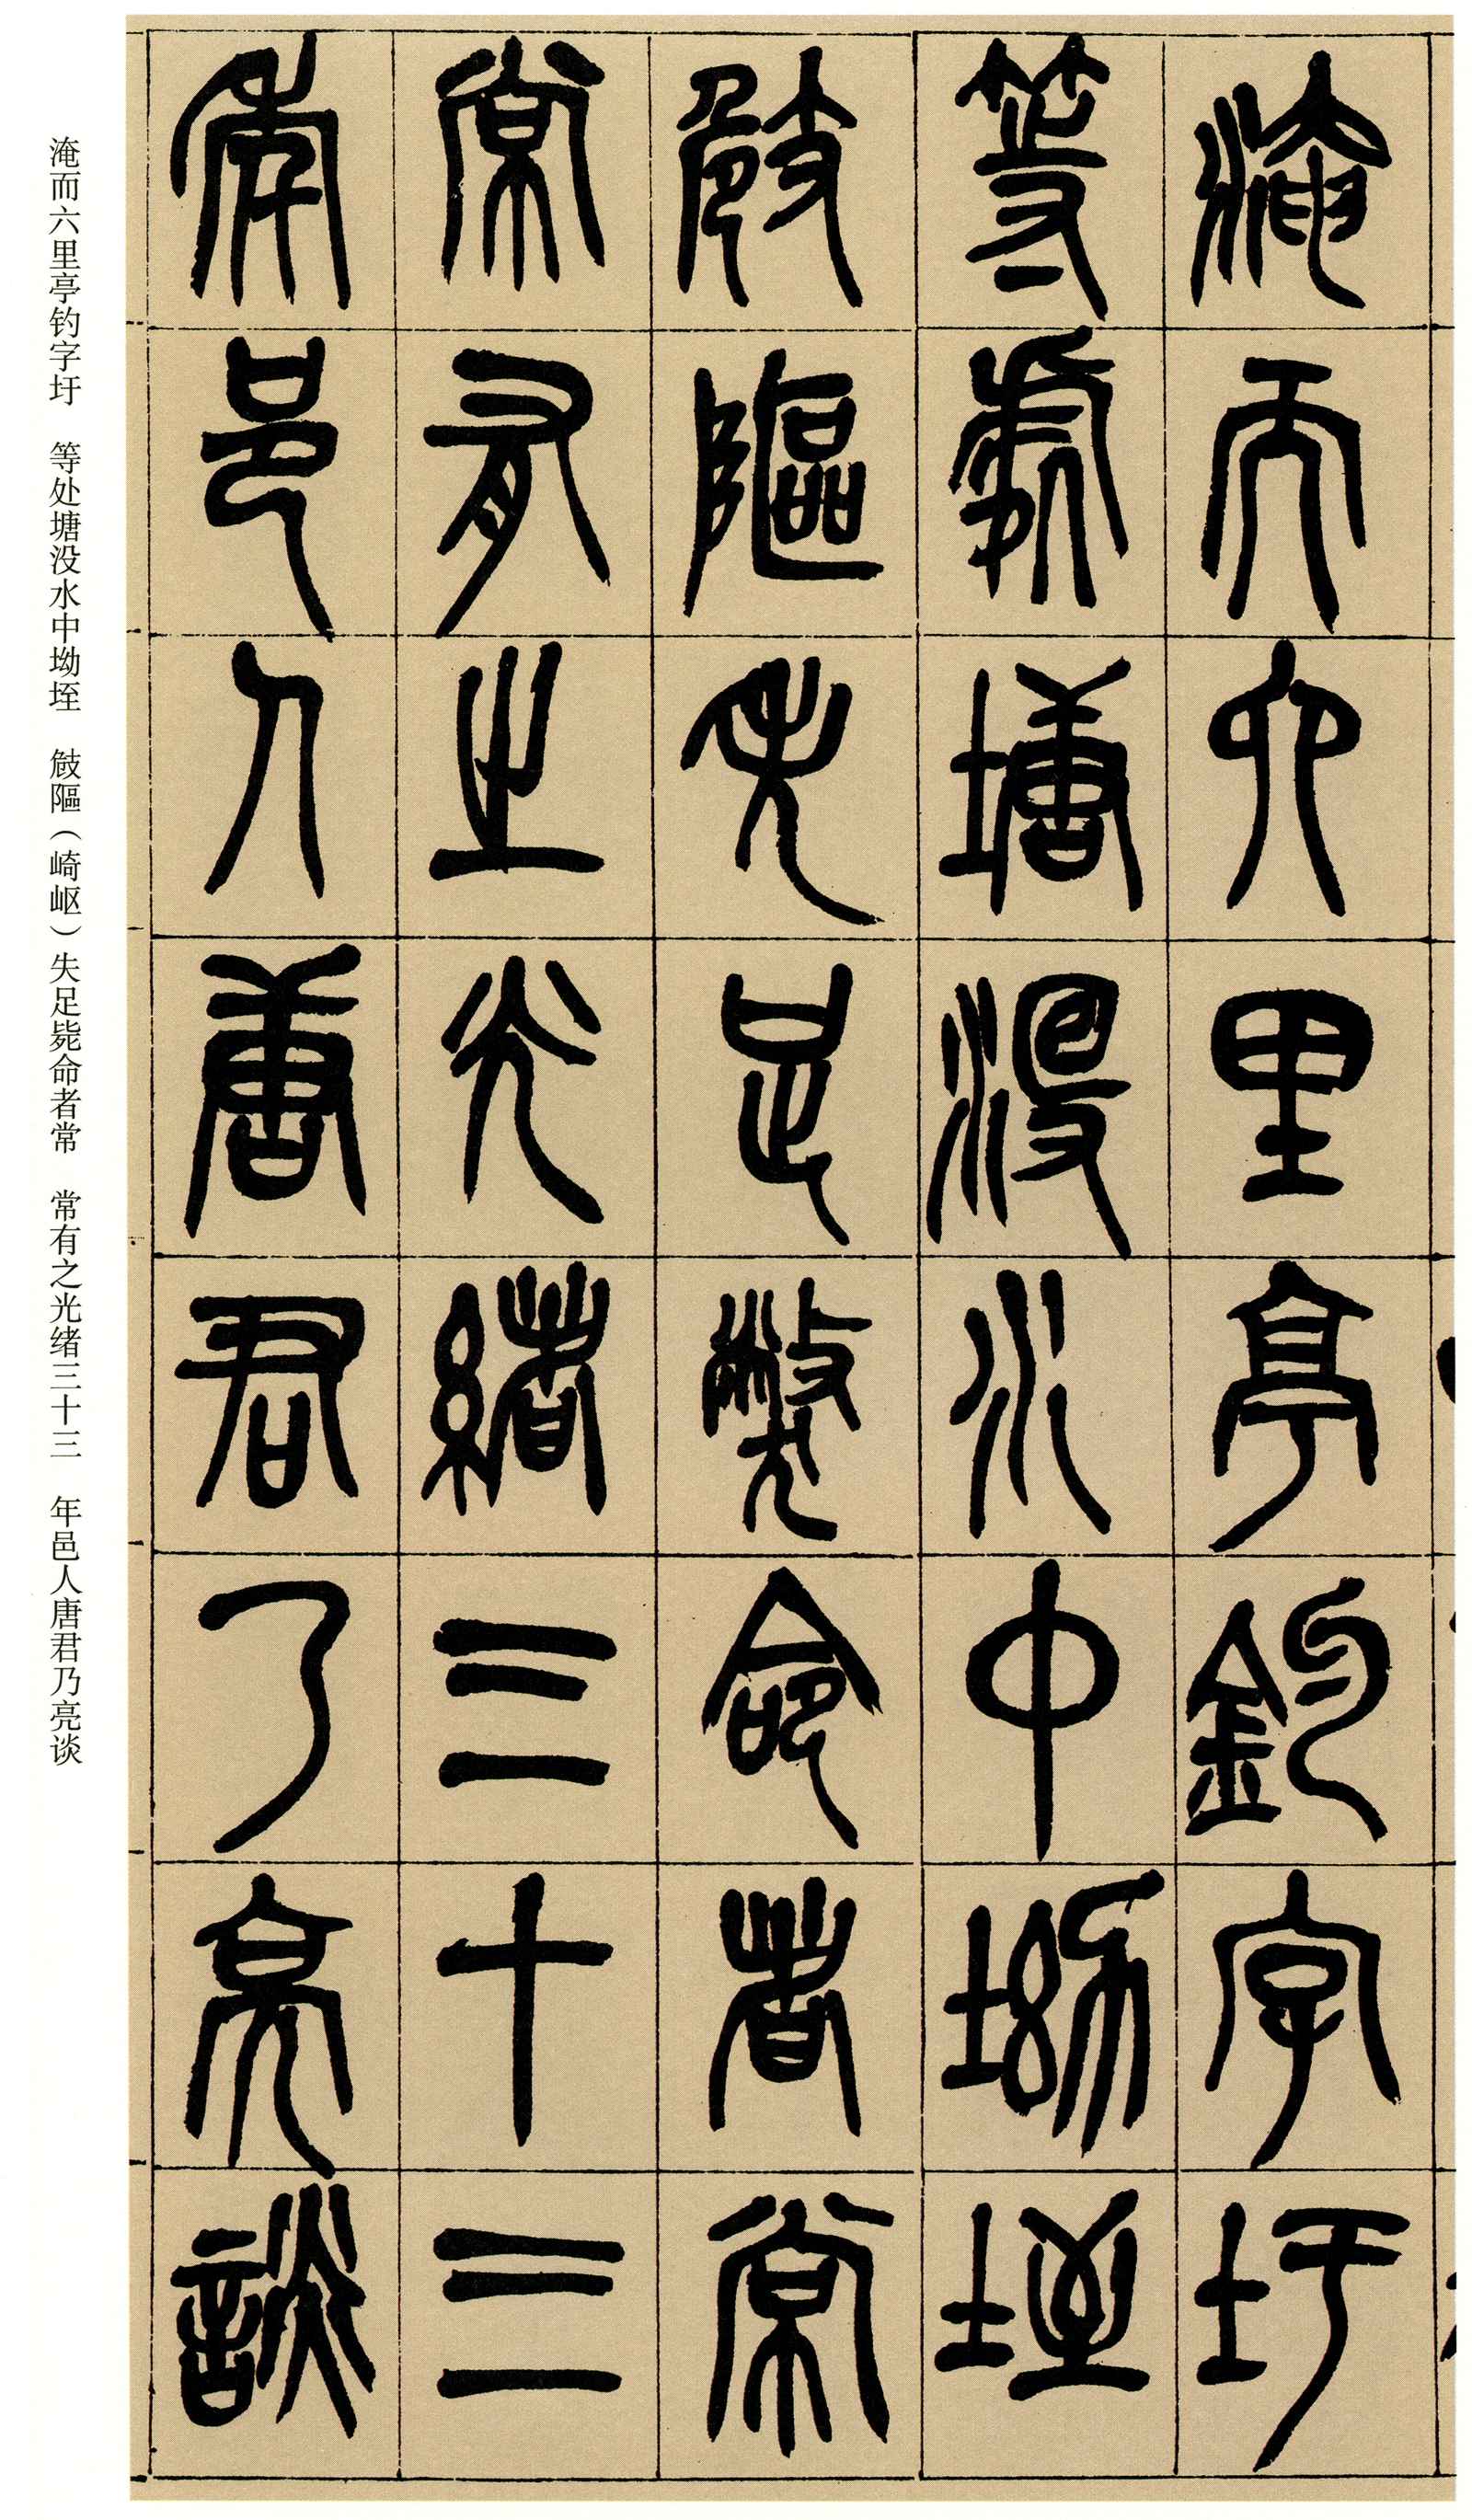 淹而六里亭釣字圩
等處塘沒水中坳垤
攲隁失足毙命者常
常有之光緒三十三
年邑人唐君乃亮談
淹而六里亭钓字圩 等处塘没水中坳垤 攲隁（崎岖）失足毙命者常 常有之光绪三十三 年邑人唐君乃亮谈